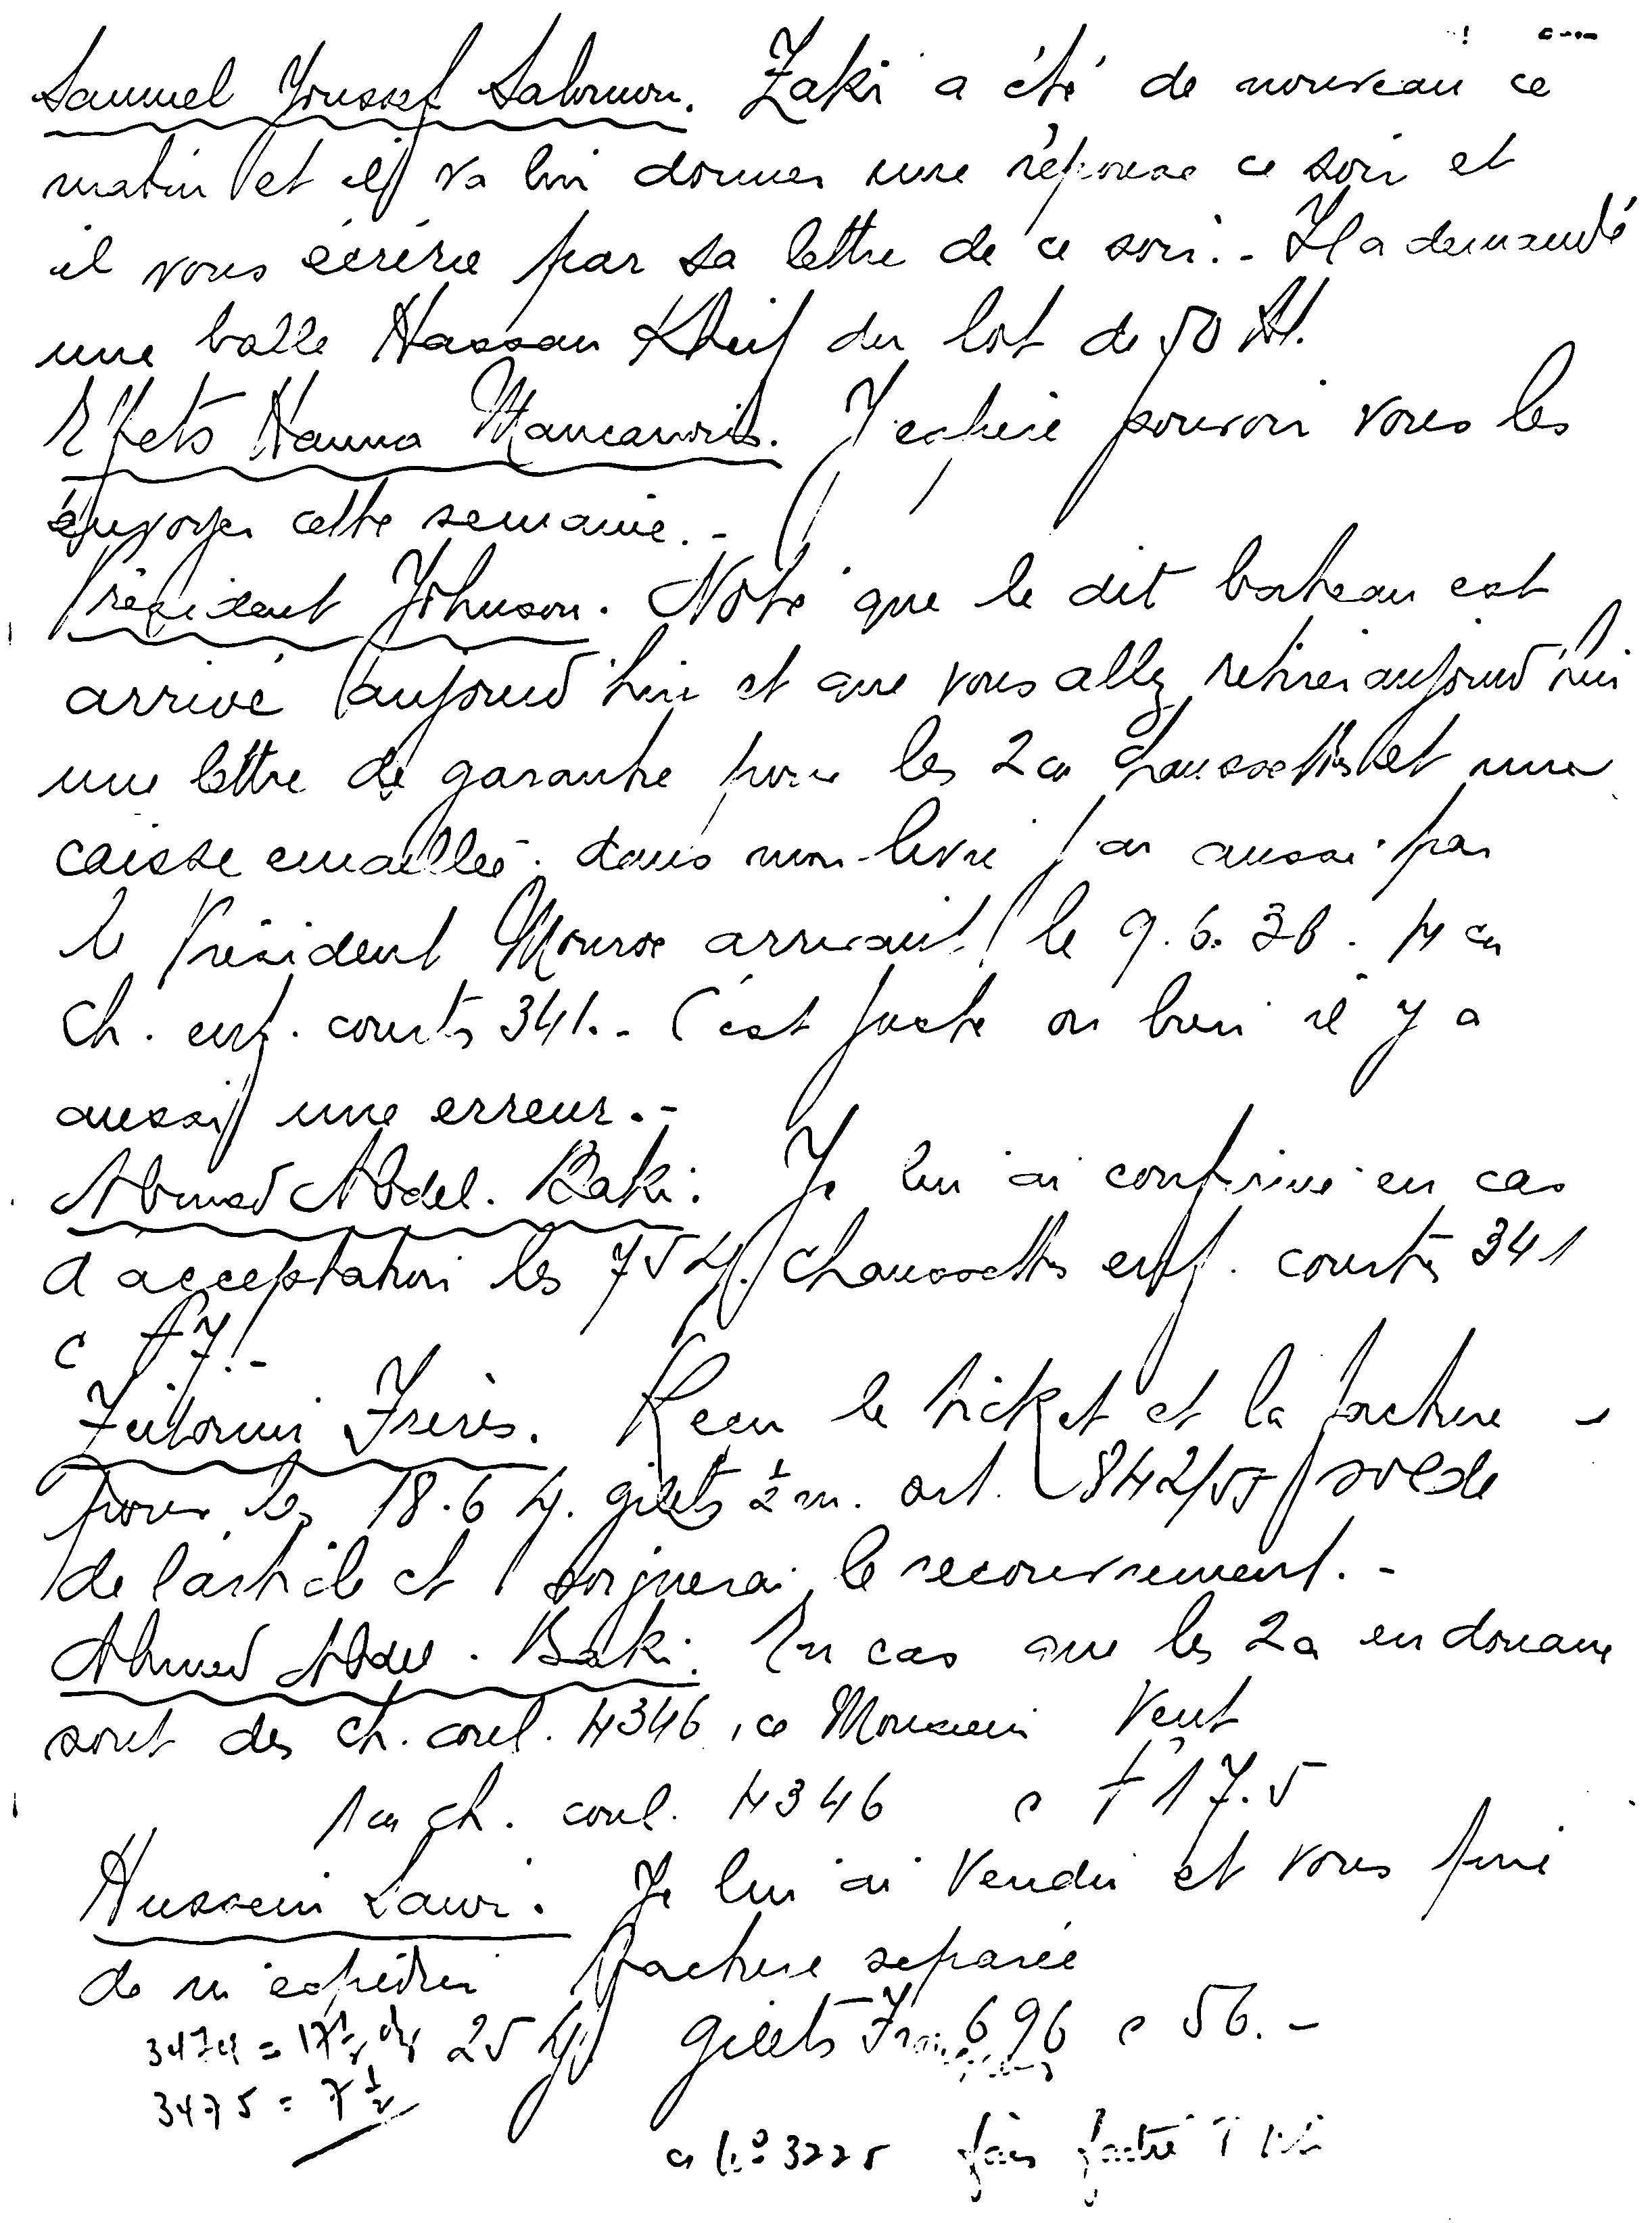 Samuel Youssef Salomon. Zaki a été de nouveau ce
matin et il va lui donner une réponse ce soir et
il vous écrire par sa lettre de ce soir. - Il a demandé
une balle Hassan du lot de 50
Effets Hanna J'espère pouvoir vous les
envoyer cette semaine. -
Président Johnson. Noté que le dit bateau est
arrivé aujourd'hui et que vous allez retirer aujourd'hui
une lettre de garantie pour les 2 cs chaussettes et une
caisse emaillée. dans mon livre j'ai aussi par
le Président Monroe arrivant le 9.6.36. 4 cs
Ch. enf. courts 341. - C'est juste ou bien il y a
aussi une erreur. -
Ahmed Abdel. Baki. Je lui ai confirmé en cas
d'acceptation les 75 chaussettes enf. courtes 341
à 7! -
Frères. Recu le ticket et la facture
pour les 18.6 gilets ½ m. art. 842/55 solde
de l'article et soignerai le recouvrement. -
Ahmed Abdel. Baki. En cas que les 2 cs en douane
sont des ch. coul. 4346, ce Monsieur veut
1 cs ch. coul. 4346 à 17.5
Hussein Lawi. Je lui ai vendu et vous prie
de m'expédier facture séparée
3474 = 17½ dz 25 gilets 696 à 56. -
3475 = 7½
3225